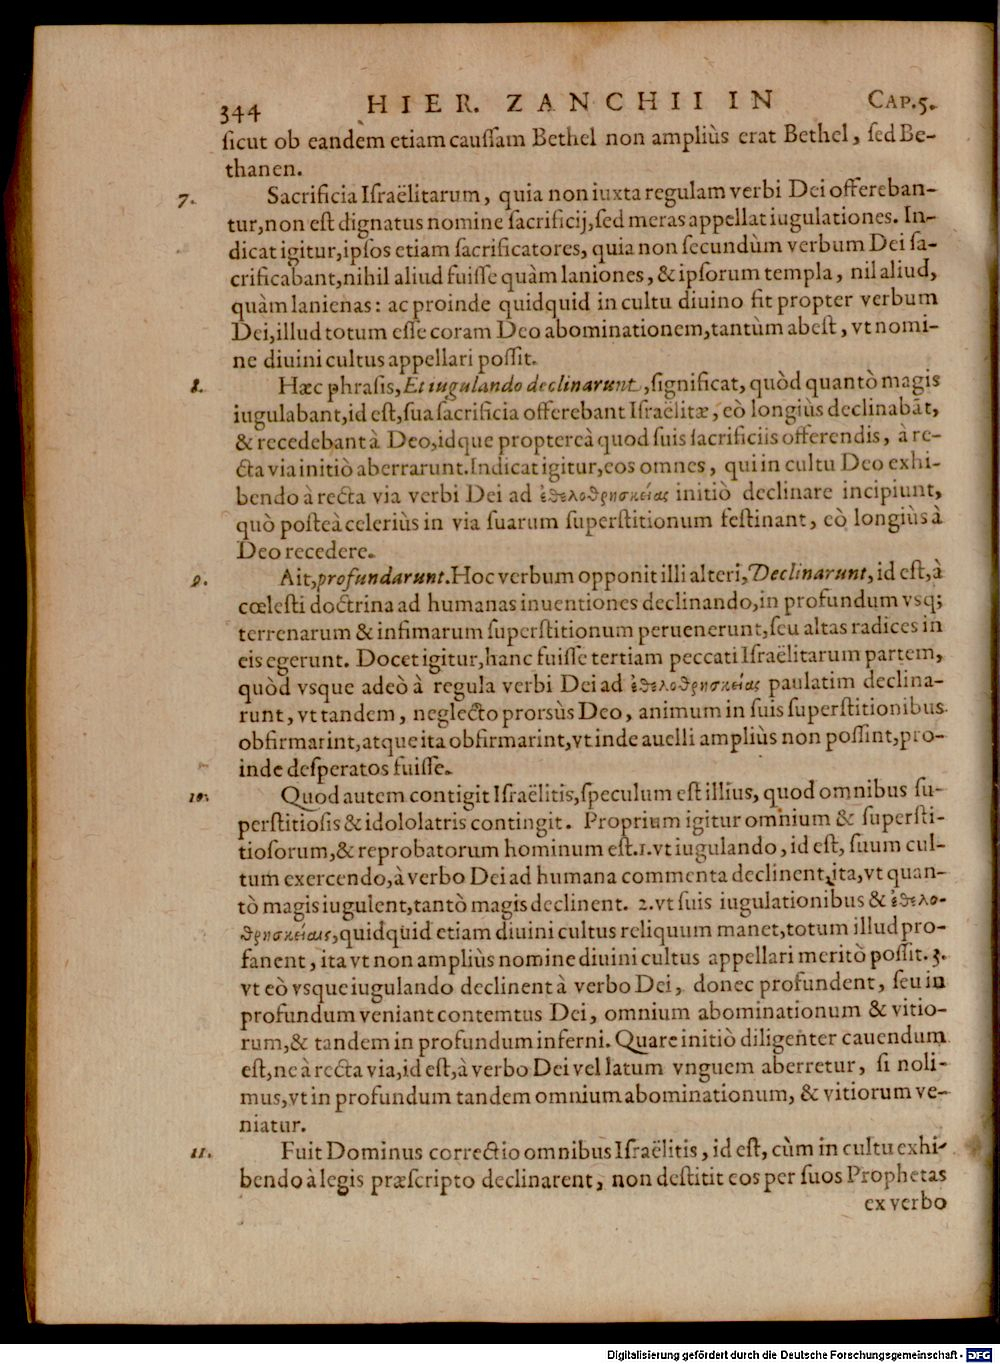 344 HIER. ZANCHII IN CAP. 5.
ſicut ob eandem etiam cauſſam Bethel non ampliùs erat Bethel, ſed Be-
thanen.
7. Sacrificia Iſraëlitarum, quia non iuxta regulam verbi Dei offereban-
tur, non eſt dignatus nomine ſacrificij, ſed meras appellat iugulationes. In-
dicat igitur, ipſos etiam ſacrificatores, quia non ſecundùm verbum Dei ſa-
crificabant, nihil aliud fuiſſe quàm laniones, & ipſorum templa, nil aliud,
quàm lanienas: ac proinde quidquid in cultu diuino fit propter verbum
Dei, illud totum eſſe coram Deo abominationem, tantùm abeſt, vt nomi-
ne diuini cultus appellari poſſit.
8. Hæc phraſis, Et iugulando declinarunt, ſignificat, quòd quantò magis
iugulabant, id eſt, ſua ſacrificia offerebant Iſraëlitæ, eò longiùs declinabāt,
& recedebant à Deo, idque proptereà quod ſuis ſacrificiis offerendis, à re-
cta via initiò aberrarunt. Indicat igitur, eos omnes, qui in cultu Deo exhi-
bendo à recta via verbi Dei ad ἐθελοθρησκείας initiò declinare incipiunt,
quò poſteà celeriùs in via ſuarum ſuperſtitionum feſtinant, eò longiùs à
Deo recedere.
9. Ait, profundarunt. Hoc verbum opponit illi alteri, Declinarunt, id eſt, à
cœleſti doctrina ad humanas inuentiones declinando, in profundum vsq;
terrenarum & infimarum ſuperſtitionum peruenerunt, ſeu altas radices in
eis egerunt. Docet igitur, hanc fuiſſe tertiam peccati Iſraëlitarum partem,
quòd vsque adeò à regula verbi Dei ad ἐθελοθρησκείας paulatim declina-
runt, vt tandem, neglecto prorsùs Deo, animum in ſuis ſuperſtitionibus
obfirmarint, atque ita obfirmarint, vt inde auelli ampliùs non poſſint, pro-
inde deſperatos fuiſſe.
10. Quod autem contigit Iſraëlitis, ſpeculum eſt illius, quod omnibus ſu-
perſtitioſis & idololatris contingit. Proprium igitur omnium & ſuperſti-
tioſorum, & reprobatorum hominum eſt. 1. vt iugulando, id eſt, ſuum cul-
tum exercendo, à verbo Dei ad humana commenta declinent, ita, vt quan-
tò magis iugulent, tantò magis declinent. 2. vt ſuis iugulationibus & ἐθελο-
θρησκείαις, quidquid etiam diuini cultus reliquum manet, totum illud pro-
fanent, ita vt non ampliùs nomine diuini cultus appellari meritò poſſit. 3.
vt eò vsque iugulando declinent à verbo Dei, donec profundent, ſeu in
profundum veniant contemtus Dei, omnium abominationum & vitio-
rum, & tandem in profundum inferni. Quare initiò diligenter cauendum
eſt, ne à recta via, id eſt, à verbo Dei vel latum vnguem aberretur, ſi noli-
mus, vt in profundum tandem omnium abominationum, & vitiorum ve-
niatur.
11. Fuit Dominus correctio omnibus Iſraëlitis, id eſt, cùm in cultu exhi-
bendo à legis præſcripto declinarent, non deſtitit eos per ſuos Prophetas
ex verbo
Digitalisierung gefördert durch die Deutsche Forschungsgemeinschaft - DFG